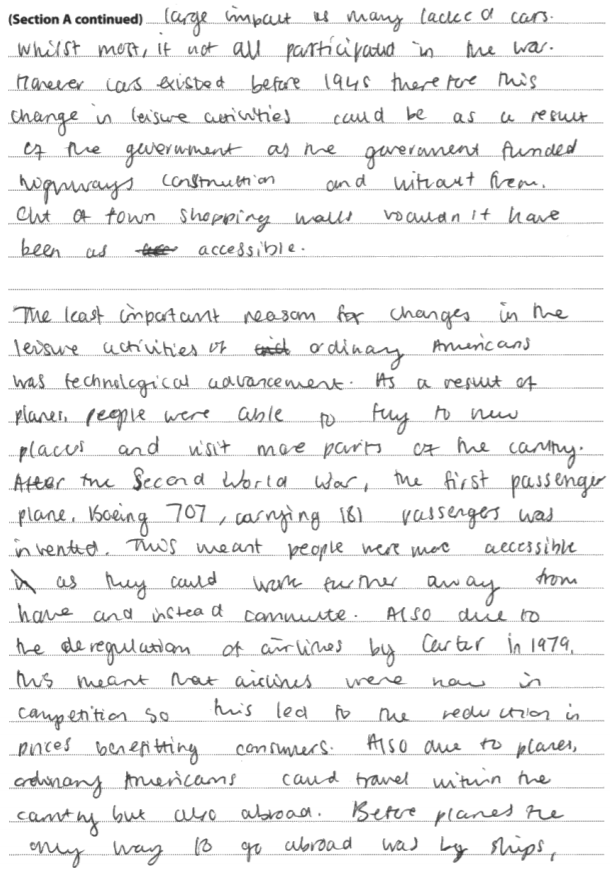 (Section A continued) large impact as many lacked cars.
Whilst most, if not all participated in the war.
However cars existed before 1945 therefore this
change in leisure activities could be as a result
of the government as the government funded
highways construction and without them.
Out of town shopping malls wouldn't have
been as accessible.
The least important reason for changes in the
leisure activities of ordinary Americans
was technological advancement. As a result of
planes, people were able to fly to new
places and visit more parts of the country.
After the Second World War, the first passenger
plane, Boeing 707, carrying 181 passengers was
invented. This meant people were more accessible
as they could work further away from
home and instead commute. Also due to
the deregulation of airlines by Carter in 1979,
this meant that airlines were now in
competition so this led to the reduction in
prices benefitting consumers. Also due to planes,
ordinary Americans could travel within the
country but also abroad. Before planes the
only way to go abroad was by ships,